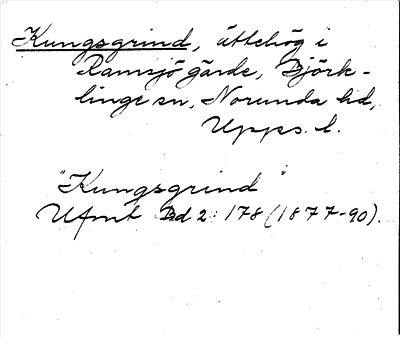 Kungsgrind, ättehög i
Ramsjö gärde, Björk-
linge sn, Norunda hd,
Upps. l.
"Kungsgrind"
Ufmt Bd 2: 178 (1877-90).